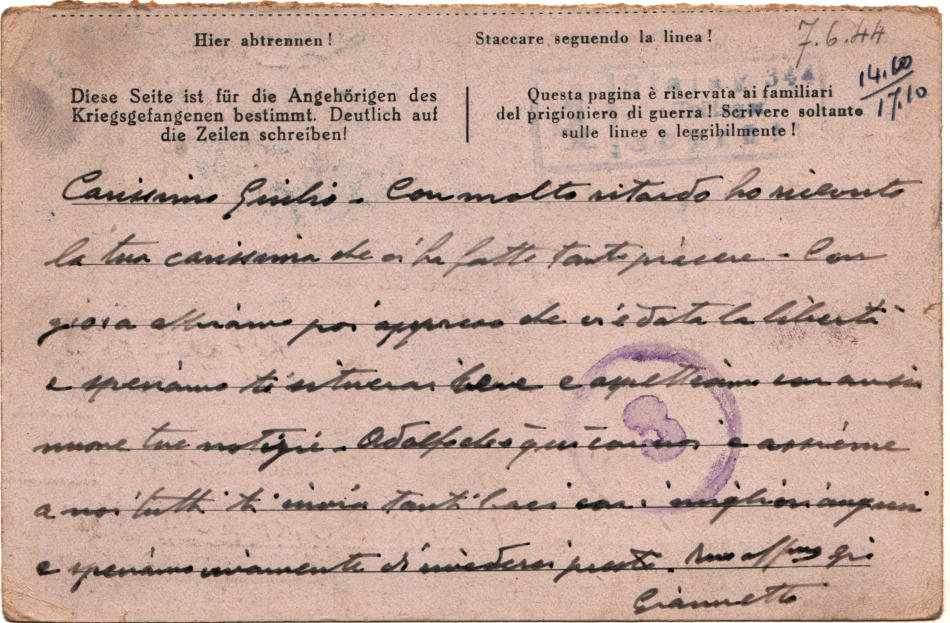 Hier abtrennen!
Staccare seguendo la linea!
7.6.44
14.60
17.10
Diese Seite ist für die Angehörigen des
Kriegsgefangenen bestimmt. Deutlich auf
die Zeilen schreiben!
Questa pagina è riservata ai familiari
del prigioniero di guerra! Scrivere soltanto
sulle linee e leggibilmente!
Carissimo Giulio - Con molto ritardo ho ricevuto
la tua carissima che ci ha fatto tanto piacere - Con
gioia abbiamo poi appreso che vi è data la libertà
e speriamo ti situerai bene e aspettiamo con ansia
nuove tue notizie - Adolfo che è qui con noi e assieme
a noi tutti ti invia tanti baci con i migliori auguri
e speriamo vivamente di rivederci presto.
Giannetto